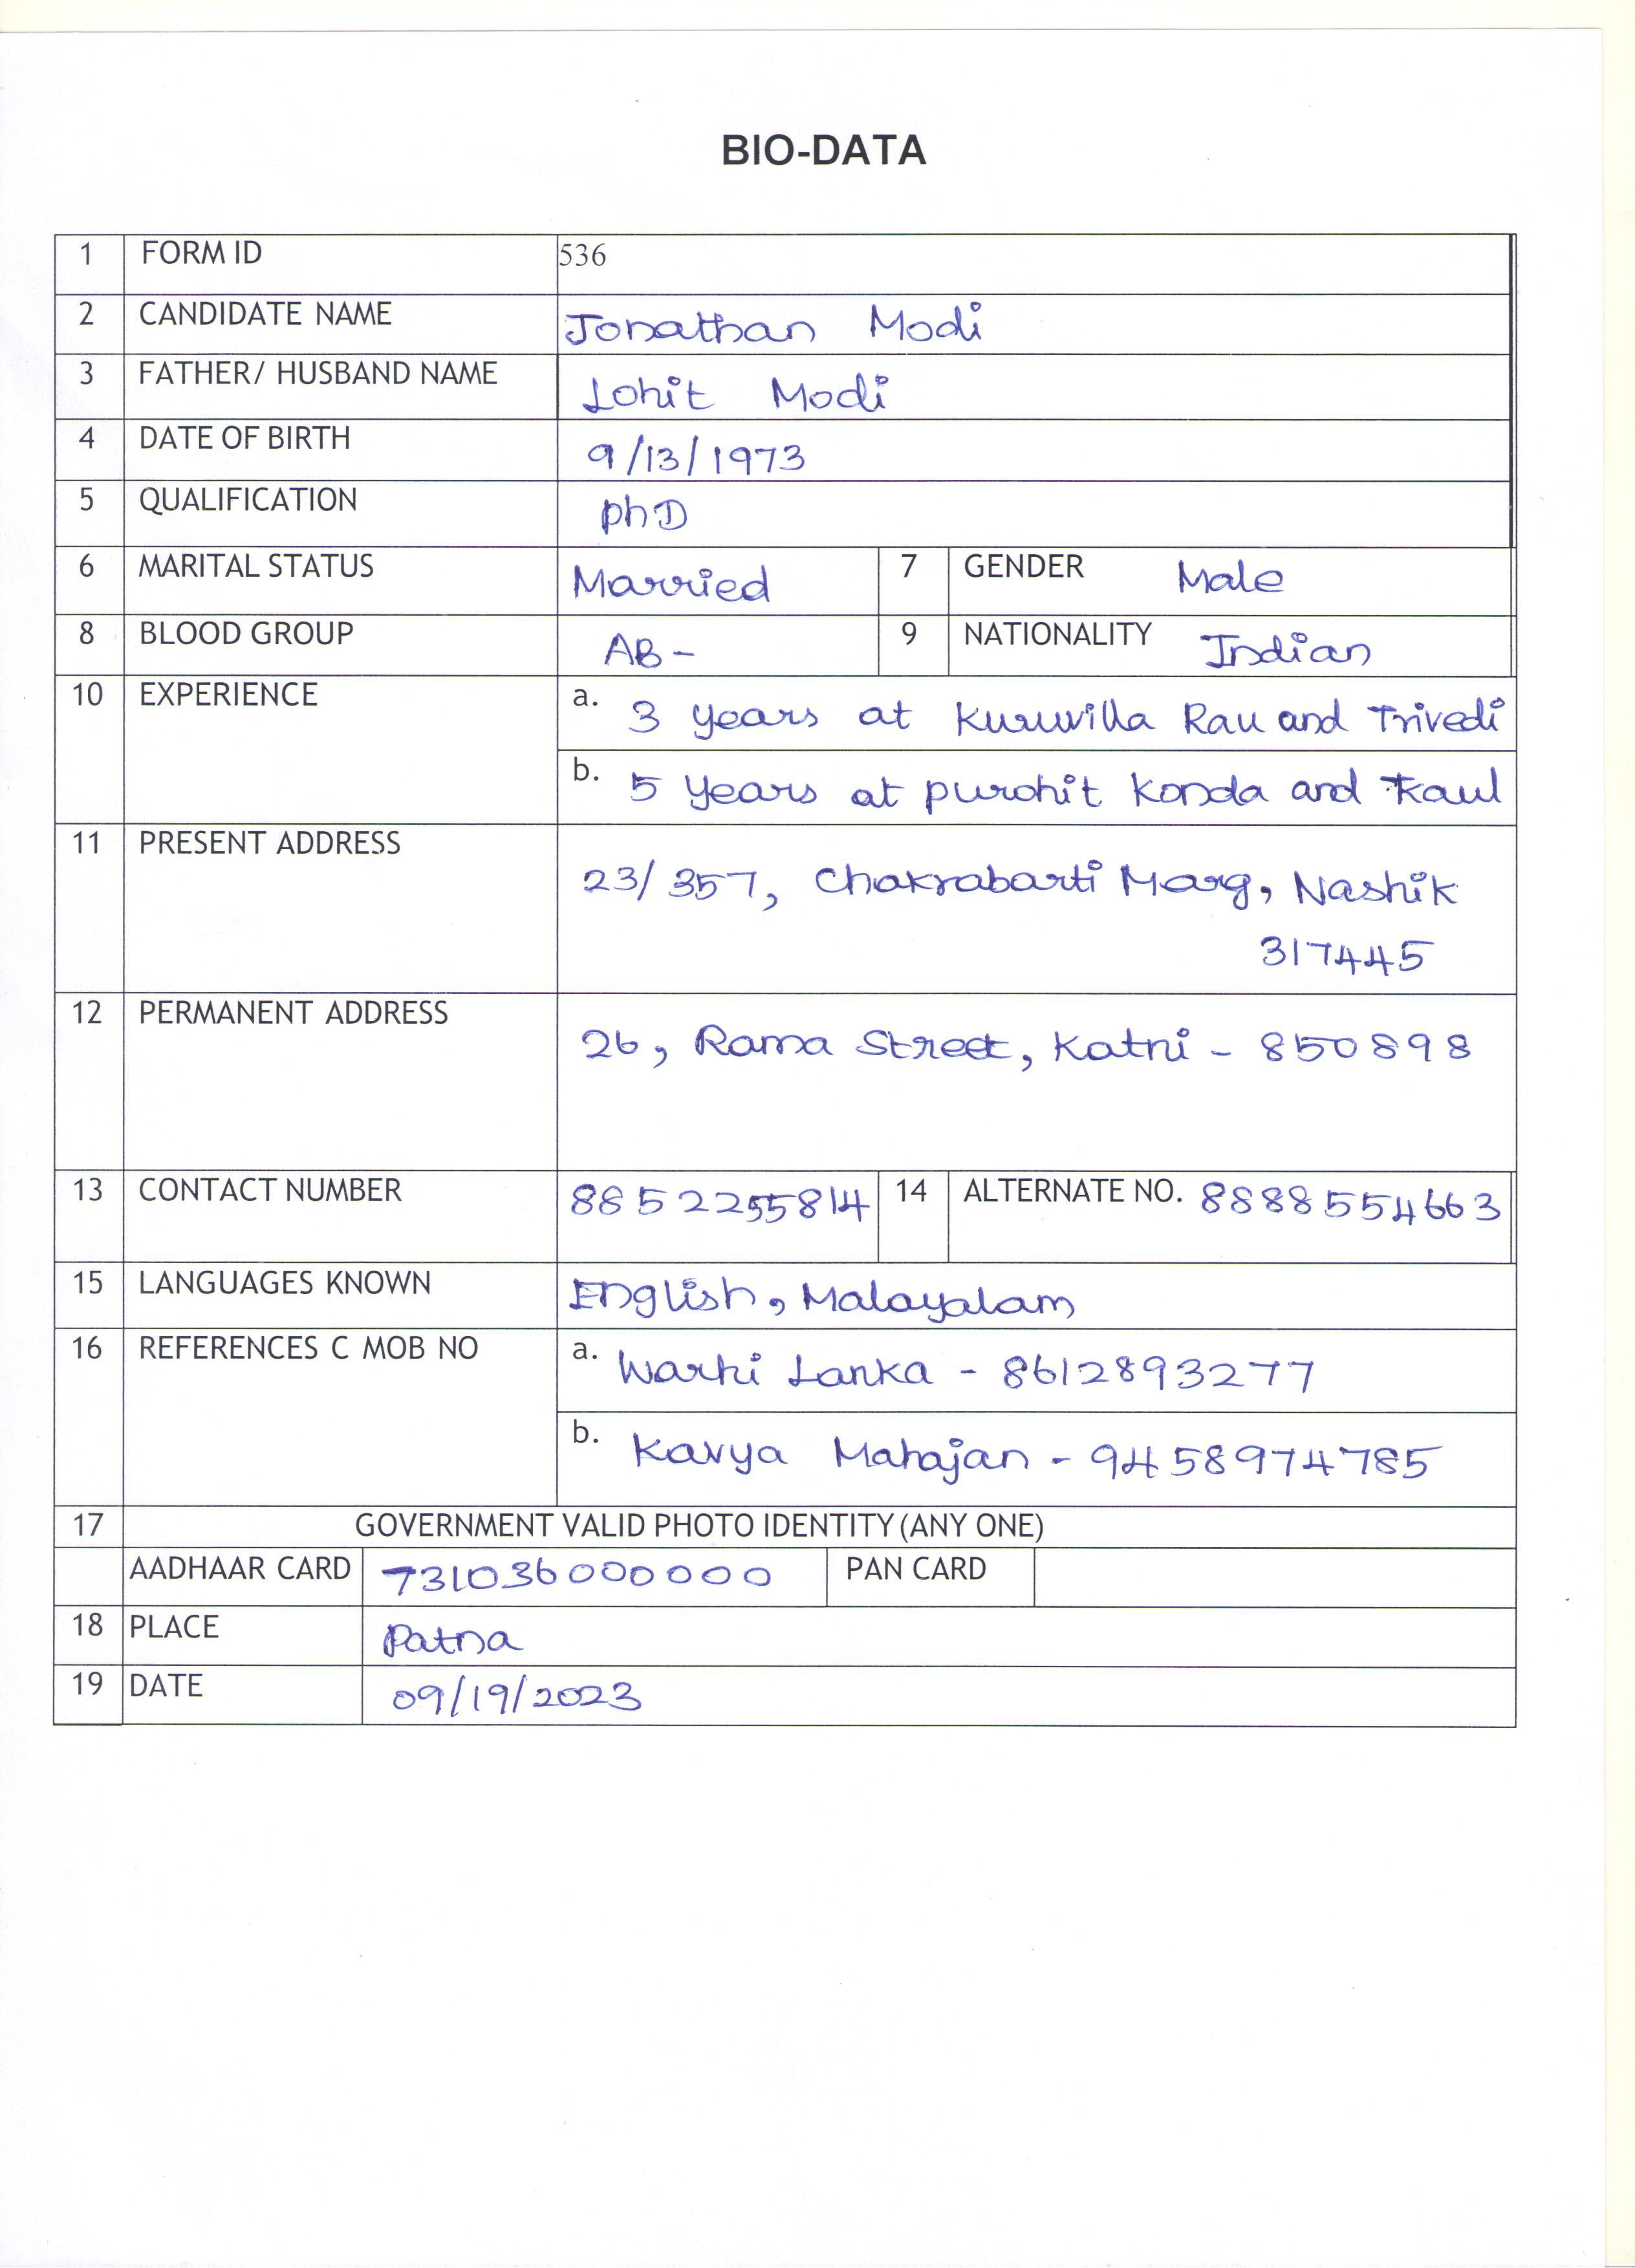 BIO-DATA
1 FORM ID 536
2 CANDIDATE NAME Jonathan Modi
3 FATHER/ HUSBAND NAME Lohit Modi
4 DATE OF BIRTH 9/13/1973
5 QUALIFICATION phD
6 MARITAL STATUS Married 7 GENDER Male
8 BLOOD GROUP AB- 9 NATIONALITY Indian
10 EXPERIENCE a. 3 years at Kuruvilla Rau and Trivedi
b. 5 Years at purohit Konda and Kaul
11 PRESENT ADDRESS
23/357, Chakrabarti Marg, Nashik
317445
12 PERMANENT ADDRESS
26, Rama Street, Katni - 850898
13 CONTACT NUMBER 8852255814 14 ALTERNATE NO. 8888554663
15 LANGUAGES KNOWN English, Malayalam
16 REFERENCES C MOB NO a. Warhi Lanka - 8612893277
b. Kavya Mahajan - 9458974785
17 GOVERNMENT VALID PHOTO IDENTITY (ANY ONE)
AADHAAR CARD 731036000000 PAN CARD
18 PLACE Patna
19 DATE 09/19/2023